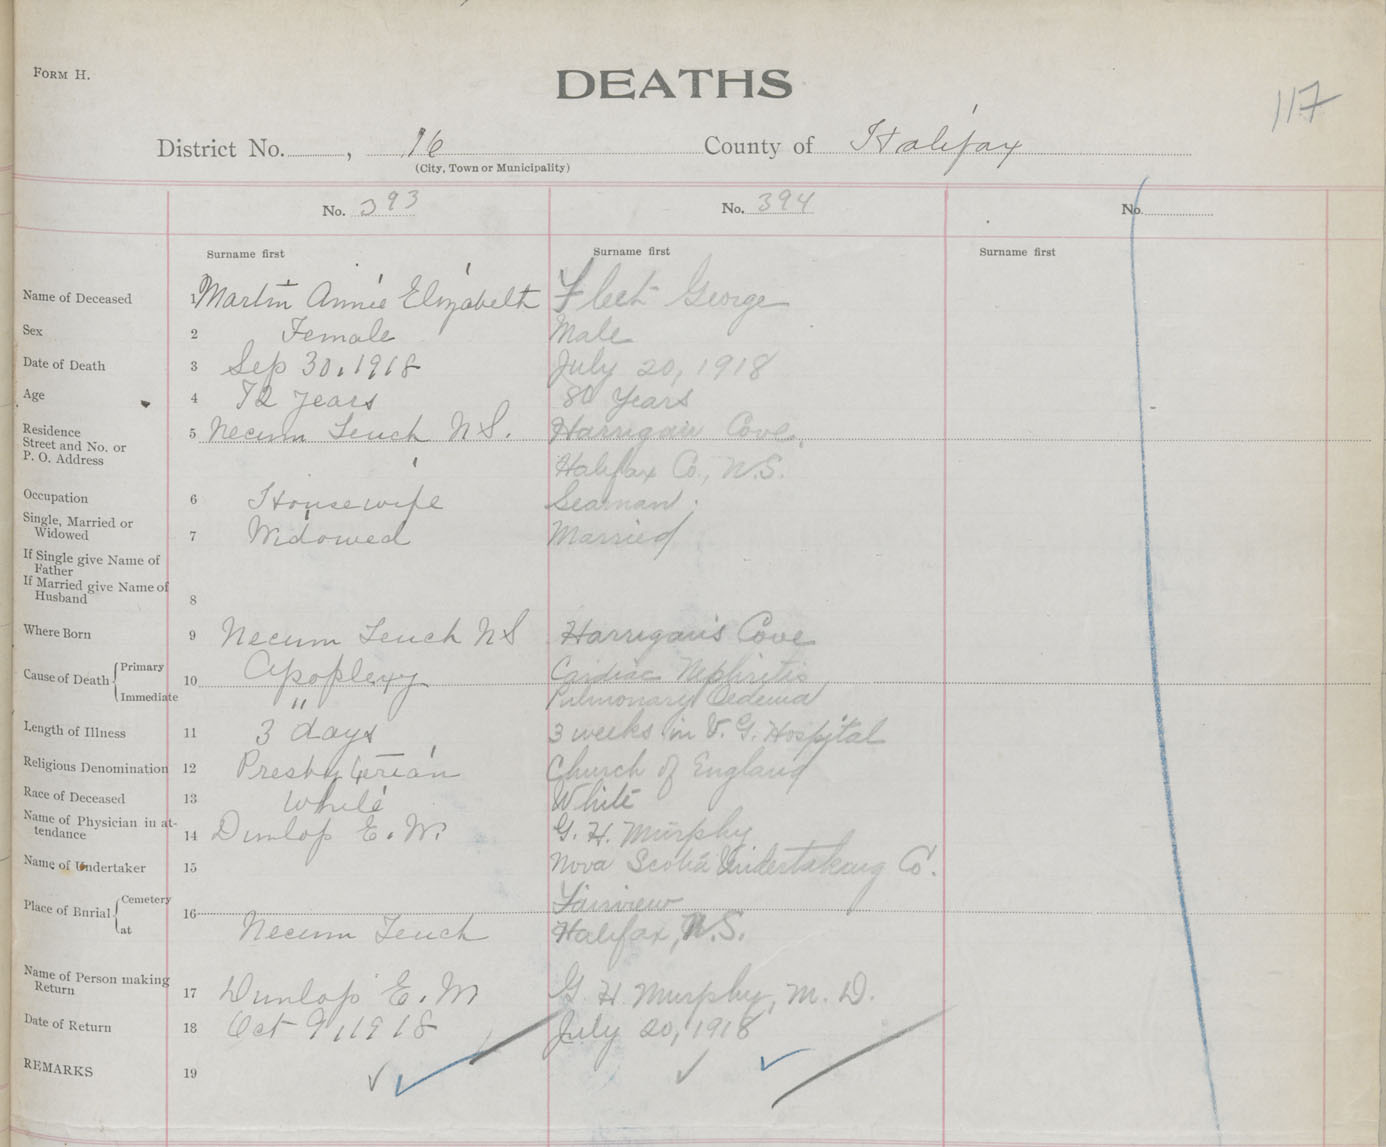 FORM H.
DEATHS
117
District No. , 16 County of Halifax
(City, Town or Municipality)
No. 393 No. 394 No.
Surname first Surname first Surname first
Name of Deceased 1 Martin Annie Elizabeth Fleet George
Sex 2 Female Male
Date of Death 3 Sep 30, 1918 July 20, 1918
Age 4 72 years 80 Years
Residence 5 Necum Teuch N.S. Harrigan Cove,
Street and No. or
P. O. Address Halifax Co., N.S.
Occupation 6 Housewife Seaman.
Single, Married or
Widowed 7 Widowed Married
If Single give Name of
Father
If Married give Name of
Husband 8
Where Born 9 Necum Teuch NS Harrigan's Cove
Cause of Death Primary 10 Apoplexy Cardiac Nephritis
Immediate " Pulmonary Oedema
Length of Illness 11 3 days 3 weeks in V. G. Hospital
Religious Denomination 12 Presbyterian Church of England
Race of Deceased 13 White White
Name of Physician in at-
tendance 14 Dunlop E. M. G. H. Murphy
Name of Undertaker 15 Nova Scotia Undertaking Co.
Place of Burial Cemetery 16 Fairview
at Necum Teuch Halifax, N.S.
Name of Person making
Return 17 Dunlop E. M G H Murphy, M. D.
Date of Return 18 Oct 9, 1918 July 20, 1918
REMARKS 19